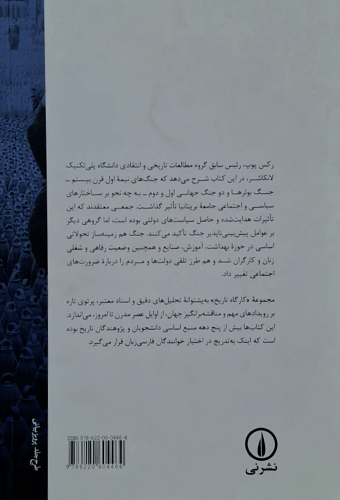 رکس پوپ، رئیس سابق گروه مطالعات تاریخی و انتقادی دانشگاه پلی‌تکنیک
لانکاشر، در این کتاب شرح می‌دهد که جنگ‌های نیمهٔ اول قرن بیستم ــ
جنگ بوئرها و دو جنگ جهانی اول و دوم ــ به چه نحو بر ساختارهای
سیاسی و اجتماعی جامعهٔ بریتانیا تأثیر گذاشت. جمعی معتقدند که این
تأثیرات هدایت‌شده و حاصل سیاست‌های دولتی بوده است، اما گروهی دیگر
بر عوامل پیش‌بینی‌ناپذیر جنگ تأکید می‌کنند. جنگ هم زمینه‌ساز تحولاتی
اساسی در حوزهٔ بهداشت، آموزش، صنایع و همچنین وضعیت رفاهی و شغلی
زنان و کارگران شد و هم طرز تلقی دولت‌ها و مردم را دربارهٔ ضرورت‌های
اجتماعی تغییر داد.
مجموعهٔ «کارگاه تاریخ» به‌پشتوانهٔ تحلیل‌های دقیق و اسناد معتبر، پرتوی تازه
بر رویدادهای مهم و مناقشه‌برانگیز جهان، از اوایل عصر مدرن تا امروز، می‌اندازد.
این کتاب‌ها بیش از پنج دهه منبع اساسی دانشجویان و پژوهندگان تاریخ بوده
است که اینک به‌تدریج در اختیار خوانندگان فارسی‌زبان قرار می‌گیرد.
ISBN 978-622-06-0446-4
9 786220 604464
نشرنی
طرح جلد: پرویز بیانی